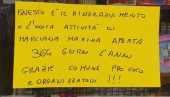 QUESTO È IL RINGRAZIAMENTO
X L'UNICA ATTIVITÀ DI
MARCIANA MARINA APERTA
364 GIORNI L'ANNO
GRAZIE COMUNE PRO LOCO
E ORGANIZZATORI !!!